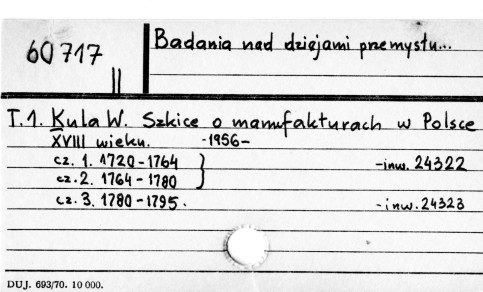 60717
II
Badania nad dziejami przemysłu...
T.1. Kula W. Szkice o manufakturach w Polsce
XVIII wieku. -1956-
cz. 1. 1720-1764 } -inw. 24322
cz. 2. 1764-1780
cz. 3. 1780-1795. -inw. 24323
DUJ. 693/70. 10 000.